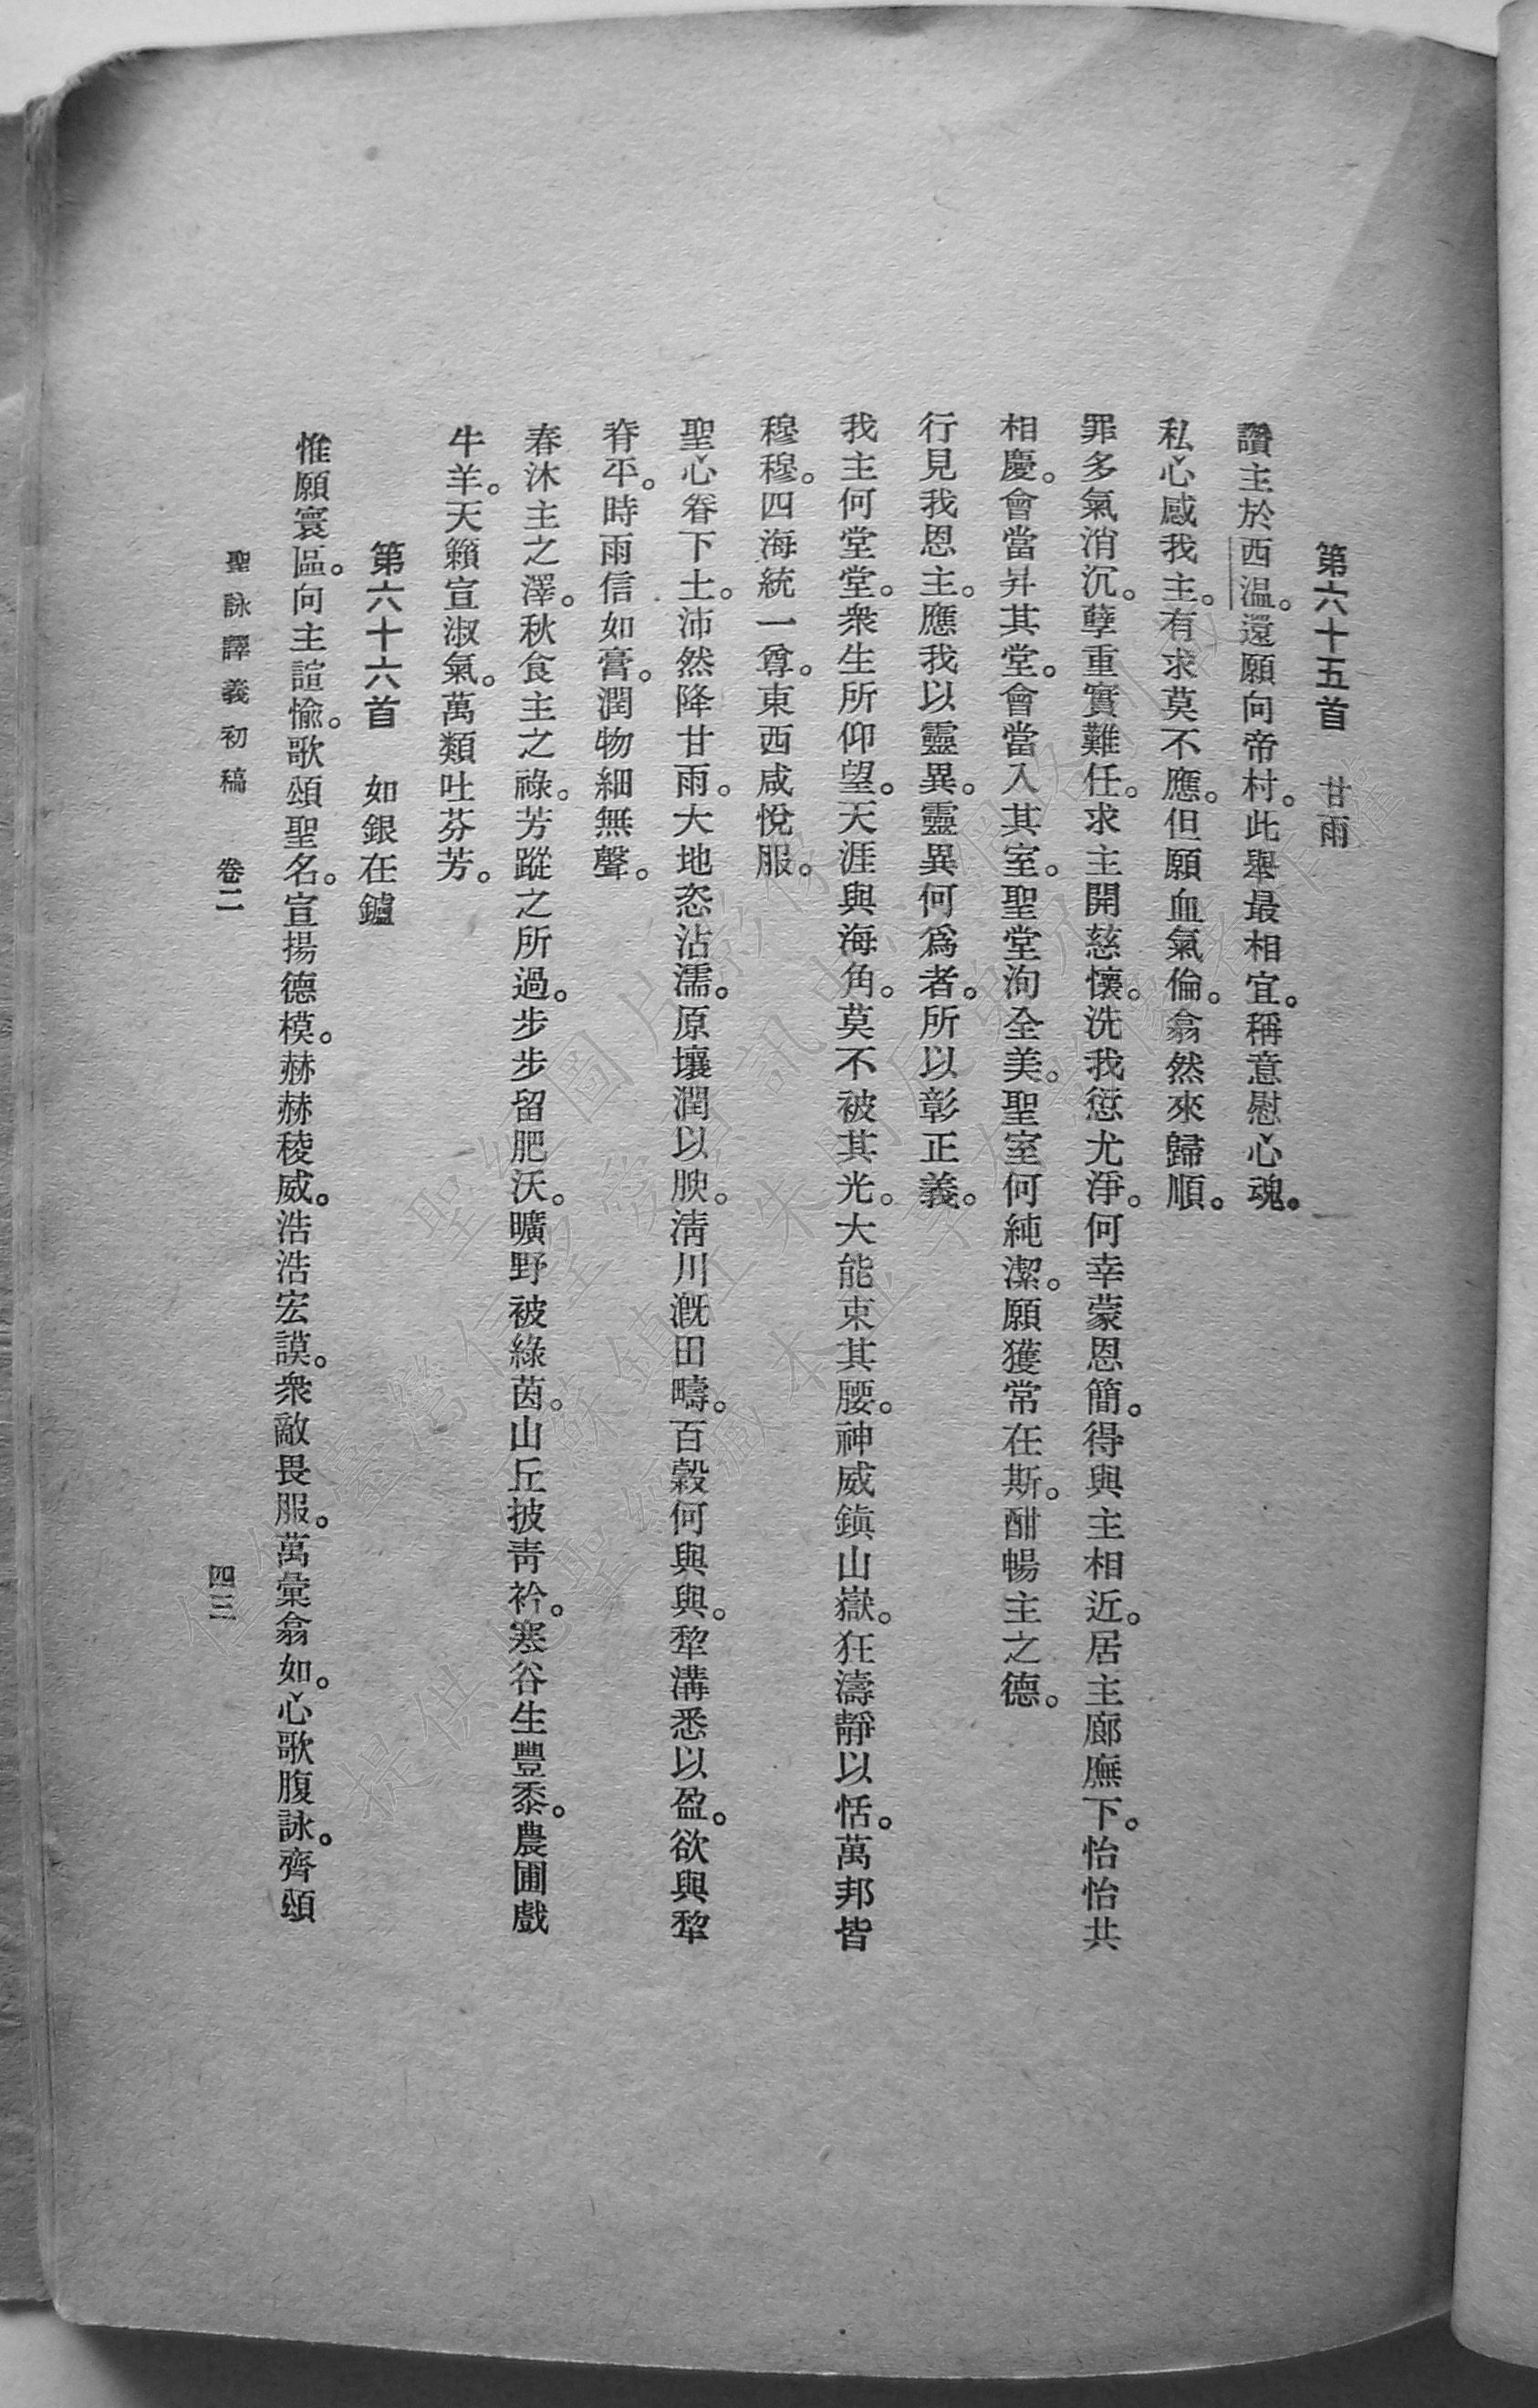 第六十五首　甘雨
讚主於西溫。還願向帝村。此舉最相宜。稱意慰心魂。
私心感我主。有求莫不應。但願血氣倫。翕然來歸順。
罪多氣消沉。孽重實難任。求主開慈懷。洗我愆尤淨。何幸蒙恩簡。得與主相近。居主廊廡下。怡怡共
相慶。會當昇其堂。會當入其室。聖堂洵全美。聖室何純潔。願獲常在斯。酣暢主之德。
行見我恩主。應我以靈異。靈異何為者。所以彰正義。
我主何堂堂。衆生所仰望。天涯與海角。莫不被其光。大能束其腰。神威鎮山嶽。狂濤靜以恬。萬邦皆
穆穆。四海統一尊。東西咸悅服。
聖心眷下土。沛然降甘雨。大地恣沾濡。原壤潤以腴。清川溉田疇。百穀何與與。犂溝悉以盈。欲與犂
脊平。時雨信如膏。潤物細無聲。
春沐主之澤。秋食主之祿。芳蹤之所過。步步留肥沃。曠野被綠茵。山丘披青衿。寒谷生豐黍。農圃戲
牛羊。天籟宣淑氣。萬類吐芬芳。
第六十六首　如銀在鑪
惟願寰區。向主諠愉。歌頌聖名。宣揚德模。赫赫稜威。浩浩宏謨。衆敵畏服。萬彙翕如。心歌腹詠。齊頌
聖詠譯義初稿　卷二　四三